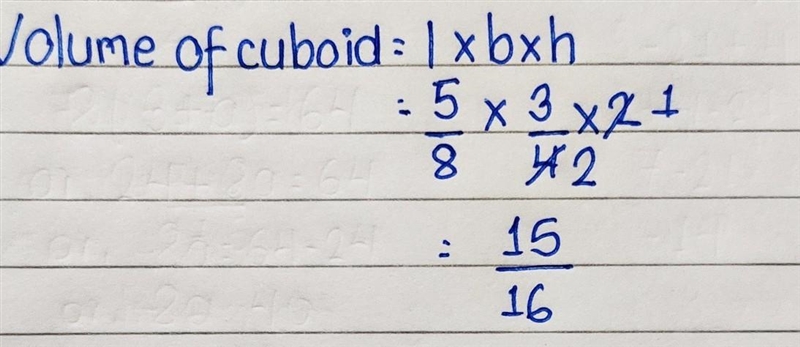 Volume of cuboid = l × b × h
= 5/8 × 3/4 2 × 2 1
= 15/16